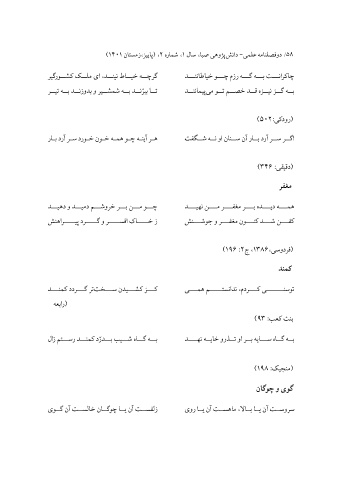 ۵۸/ دوفصلنامه علمی- دانش‌پژوهی صبا، سال ۱، شماره ۲، (پاییز-زمستان ۱۴۰۱)
چاکرانست به گه رزم چو خیاطانند گرچه خیاط نیند، ای ملک کشورگیر
به گز نیزه قد خصم تو می‌پیمانند تا ببرند به شمشیر و بدوزند به تیر
(رودکی: ۵۰۲)
اگر سر آرد بار آن سنان او نه شگفت هر آینه چو همه خون خورد سر آرد بار
(دقیقی: ۳۴۶)
مغفر
همه دیده بر مغفر من نهید چو من بر خروشم دمید و دهید
کفن شد کنون مغفر و جوشنش ز خاک افسر و گرد پیراهنش
(فردوسی، ۱۳۸۶، ج۲: ۱۹۶)
کمند
توسنی کردم، ندانستم همی کز کشیدن سخت‌تر گردد کمند
(رابعه
بنت کعب: ۹۳)
به گاه سایه بر او تذرو خایه نهد به گاه شیب بدرّد کمند رستم زال
(منجیک: ۱۹۸)
گوی و چوگان
سروست آن یا بالا، ماهست آن یا روی زلفست آن یا چوگان خالست آن گوی